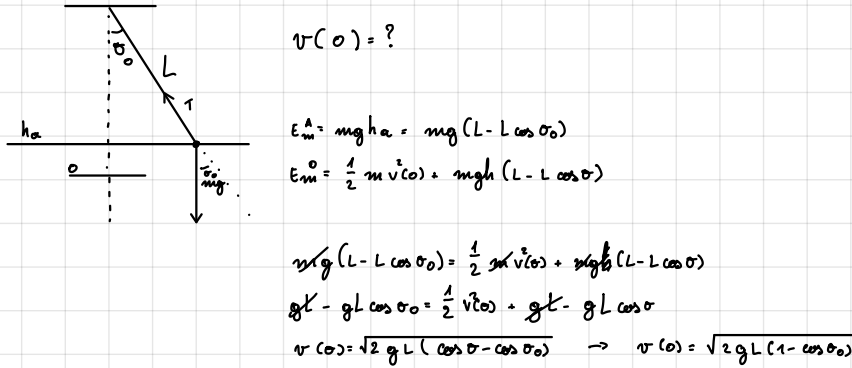 θ₀
L
T
hₐ
0
θ₀
mg
v(0) = ?
Eₘᴬ = mghₐ = mg(L - L cos θ₀)
Eₘ⁰ = 1/2 m v²(0) + mgh(L - L cos θ)
mg(L - L cos θ₀) = 1/2 m v²(0) + mgh(L - L cos θ)
gL - gL cos θ₀ = 1/2 v²(0) + gL - gL cos θ
v(0) = √2gL(cos θ - cos θ₀) → v(0) = √2gL(1 - cos θ₀)